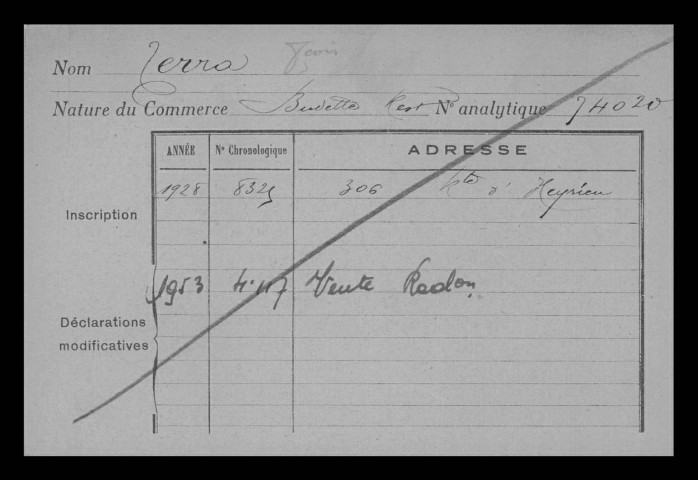 Nom Terra Fcois
Nature du Commerce Buvette Rest N° analytique 74020
ANNÉE N° Chronologique ADRESSE
Inscription 1928 8325 306 rte d'Heyrieu
1953 4.117 Vente Radon
Déclarations
modificatives